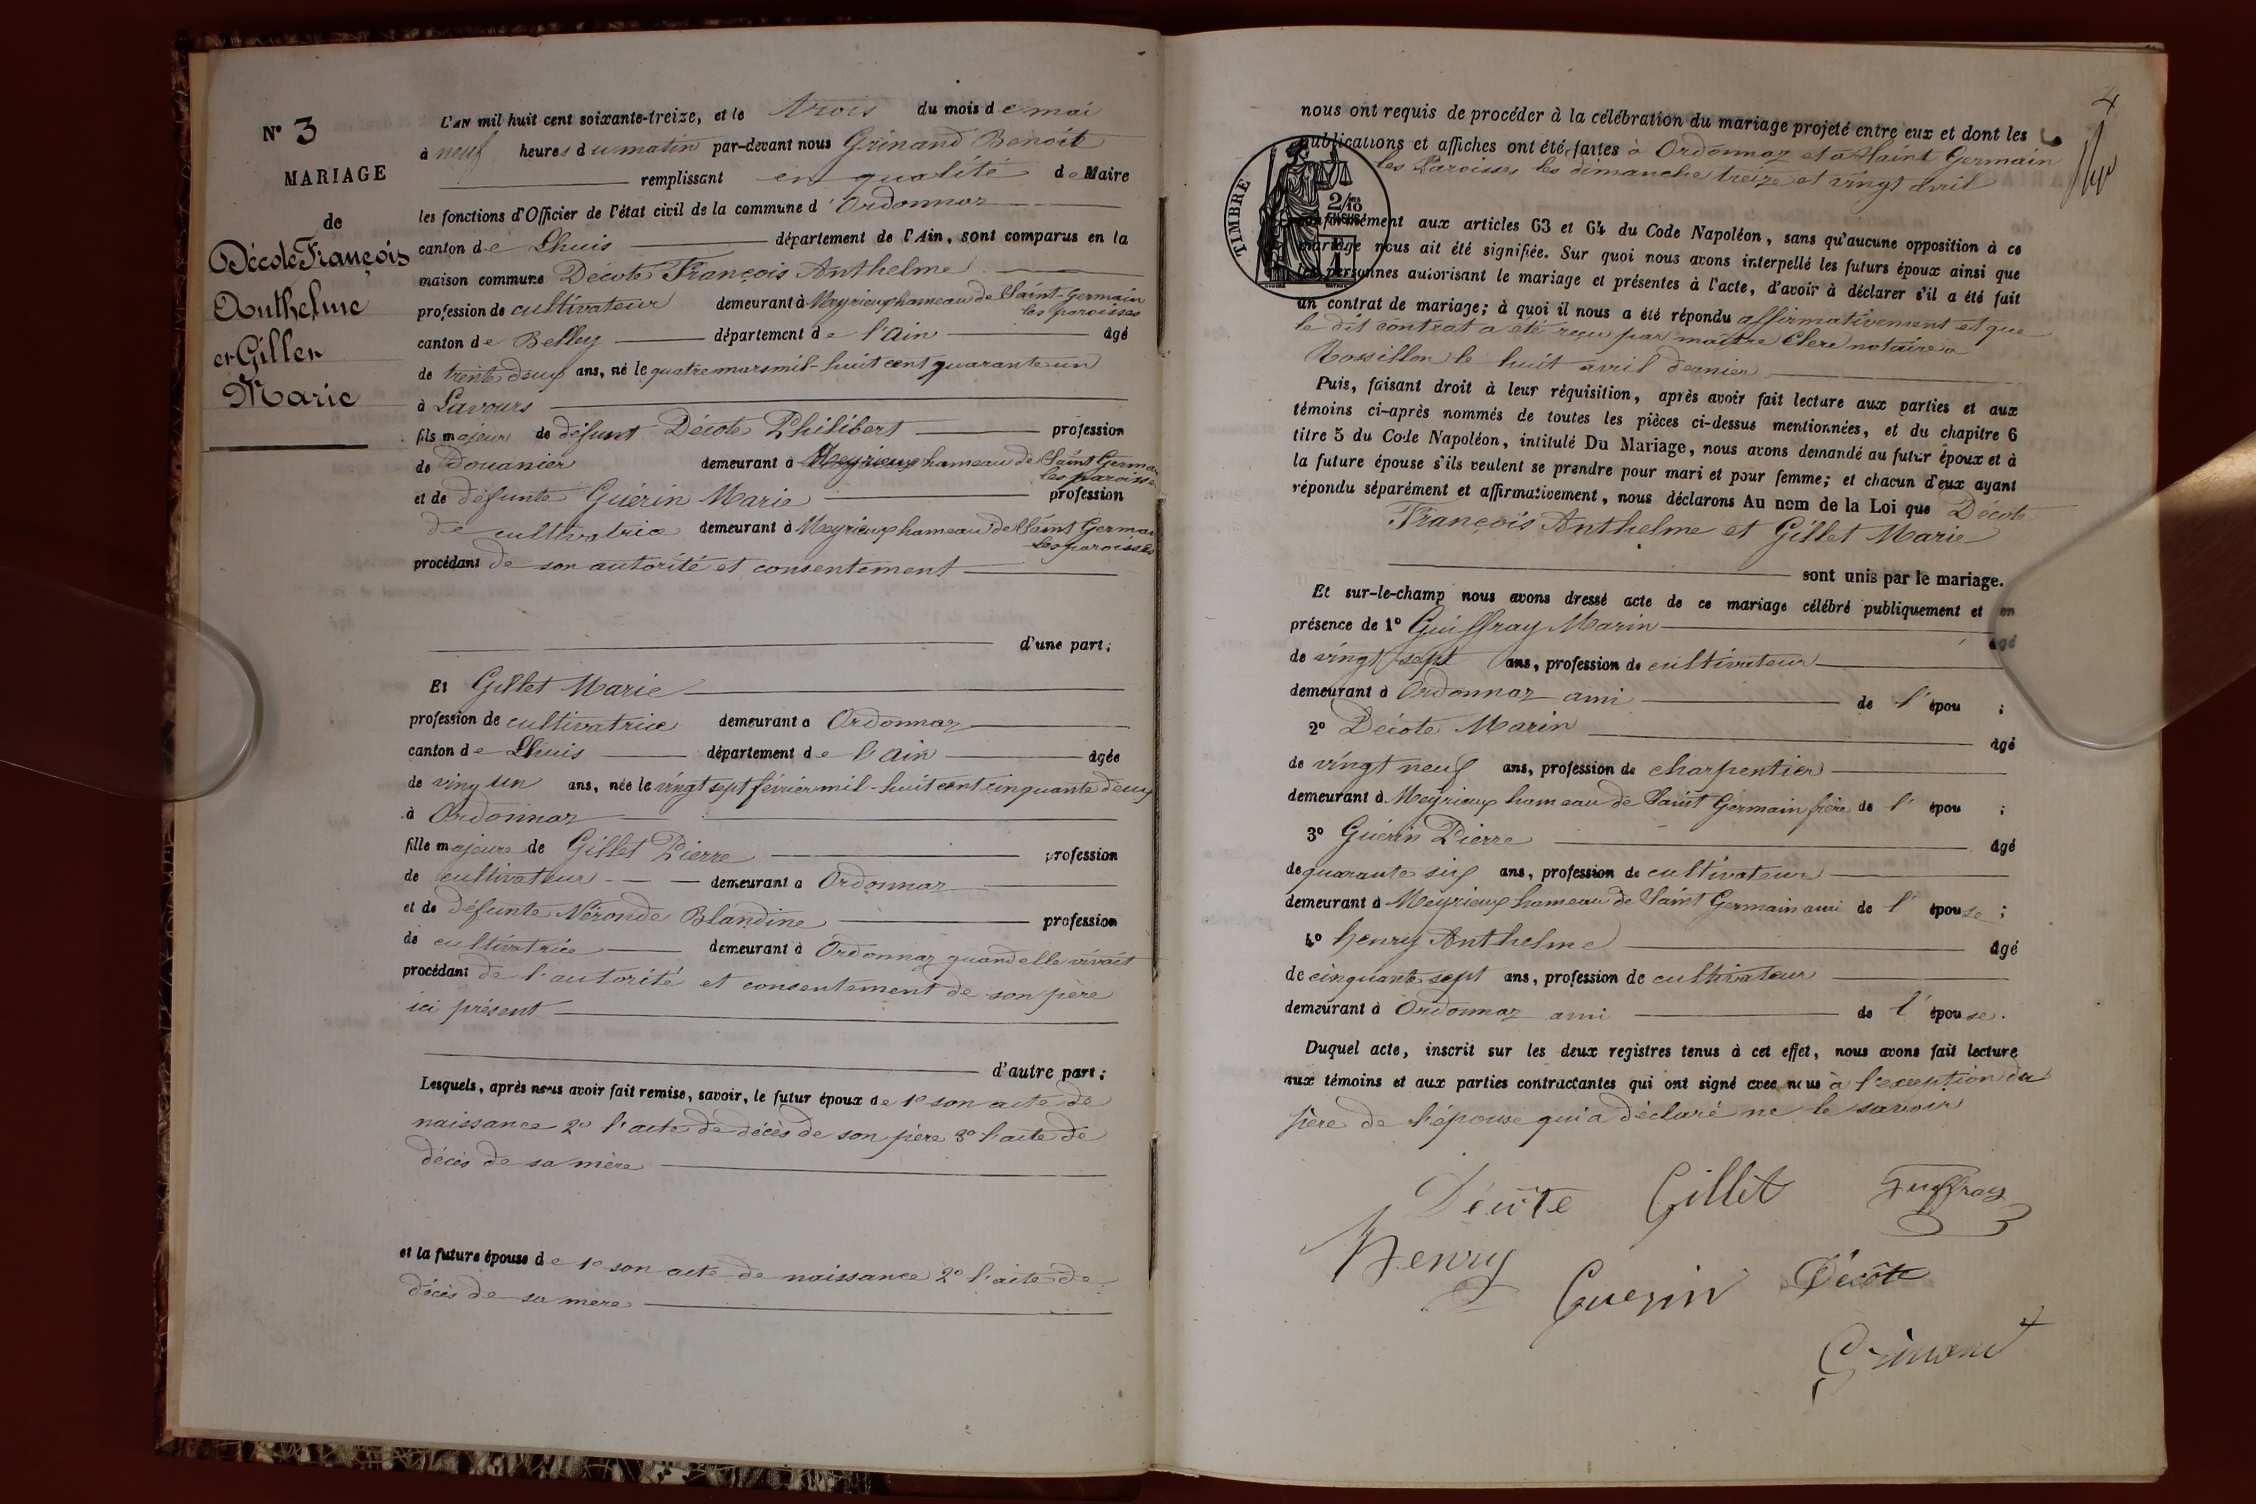 N° 3
MARIAGE
de
Décote François
Anthelme
et Gillet
Marie
L'an mil huit cent soixante-treize, et le trois du mois de mai
à neuf heures du matin par-devant nous Grinand Benoit
remplissant en qualité de Maire
les fonctions d'Officier de l'état civil de la commune d'Ordonnaz
canton de Lhuis département de l'Ain, sont comparus en la
maison commune Décote François Anthelme
profession de cultivateur demeurant à Meyrieux hameau de Saint-Germain
les paroisses
canton de Belley département de l'Ain âgé
de trente deux ans, né le quatre mars mil-huit cent quarante un
à Lavours
fils majeur de défunt Décote Philibert profession
de Douanier demeurant à Meyrieux hameau de Saint Germain
les paroisses
et de défunte Guérin Marie profession
de cultivatrice demeurant à Meyrieux hameau de Saint Germain
les paroisses
procédant de son autorité et consentement
d'une part;
Et Gillet Marie
profession de cultivatrice demeurant à Ordonnaz
canton de Lhuis département de l'Ain âgée
de ving un ans, née le vingt sept février mil-huit cent cinquante deux
à Ordonnaz
fille majeure de Gillet Pierre profession
de cultivateur demeurant à Ordonnaz
et de défunte Néronde Blandine profession
de cultivatrice demeurant à Ordonnaz quand elle vivait
procédant de l'autorité et consentement de son père
ici présent
d'autre part;
Lesquels, après nous avoir fait remise, savoir, le futur époux de 1° son acte de
naissance 2° l'acte de décès de son père 3° l'acte de
décès de sa mère
et la future épouse de 1° son acte de naissance 2° l'acte de
décès de sa mère
4
nous ont requis de procéder à la célébration du mariage projeté entre eux et dont les
publications et affiches ont été faites à Ordonnaz et à Saint Germain
les Paroisses les dimanche treize et vingt avril
TIMBRE
2/10
conformément aux articles 63 et 64 du Code Napoléon, sans qu'aucune opposition à ce
mariage nous ait été signifiée. Sur quoi nous avons interpellé les futurs époux ainsi que
les personnes autorisant le mariage et présentes à l'acte, d'avoir à déclarer s'il a été fait
un contrat de mariage; à quoi il nous a été répondu affirmativement et que
le dit contrat a été reçu par maître Clerc notaire à
Rossillon le huit avril dernier
Puis, faisant droit à leur réquisition, après avoir fait lecture aux parties et aux
témoins ci-après nommés de toutes les pièces ci-dessus mentionnées, et du chapitre 6
titre 5 du Code Napoléon, intitulé Du Mariage, nous avons demandé au futur époux et à
la future épouse s'ils veulent se prendre pour mari et pour femme; et chacun d'eux ayant
répondu séparément et affirmativement, nous déclarons Au nom de la Loi que Décote
François Anthelme et Gillet Marie
sont unis par le mariage.
Et sur-le-champ nous avons dressé acte de ce mariage célébré publiquement et en
présence de 1° Guiffray Marin
âgé
de vingt sept ans, profession de cultivateur
demeurant à Ordonnaz ami de l'épou ;
2° Décote Marin
âgé
de vingt neuf ans, profession de charpentier
demeurant à Meyrieux hameau de Saint Germain frère de l'épou ;
3° Guérin Pierre
âgé
de quarante six ans, profession de cultivateur
demeurant à Meyrieux hameau de Saint Germain ami de l'épouse ;
4° henry Anthelme
âgé
de cinquante sept ans, profession de cultivateur
demeurant à Ordonnaz ami de l'épouse.
Duquel acte, inscrit sur les deux registres tenus à cet effet, nous avons fait lecture
aux témoins et aux parties contractantes qui ont signé avec nous à l'exception du
père de l'épouse qui a déclaré ne le savoir
Décôte Gillet Guiffray
Henry
Guerin Décôte
Grinand